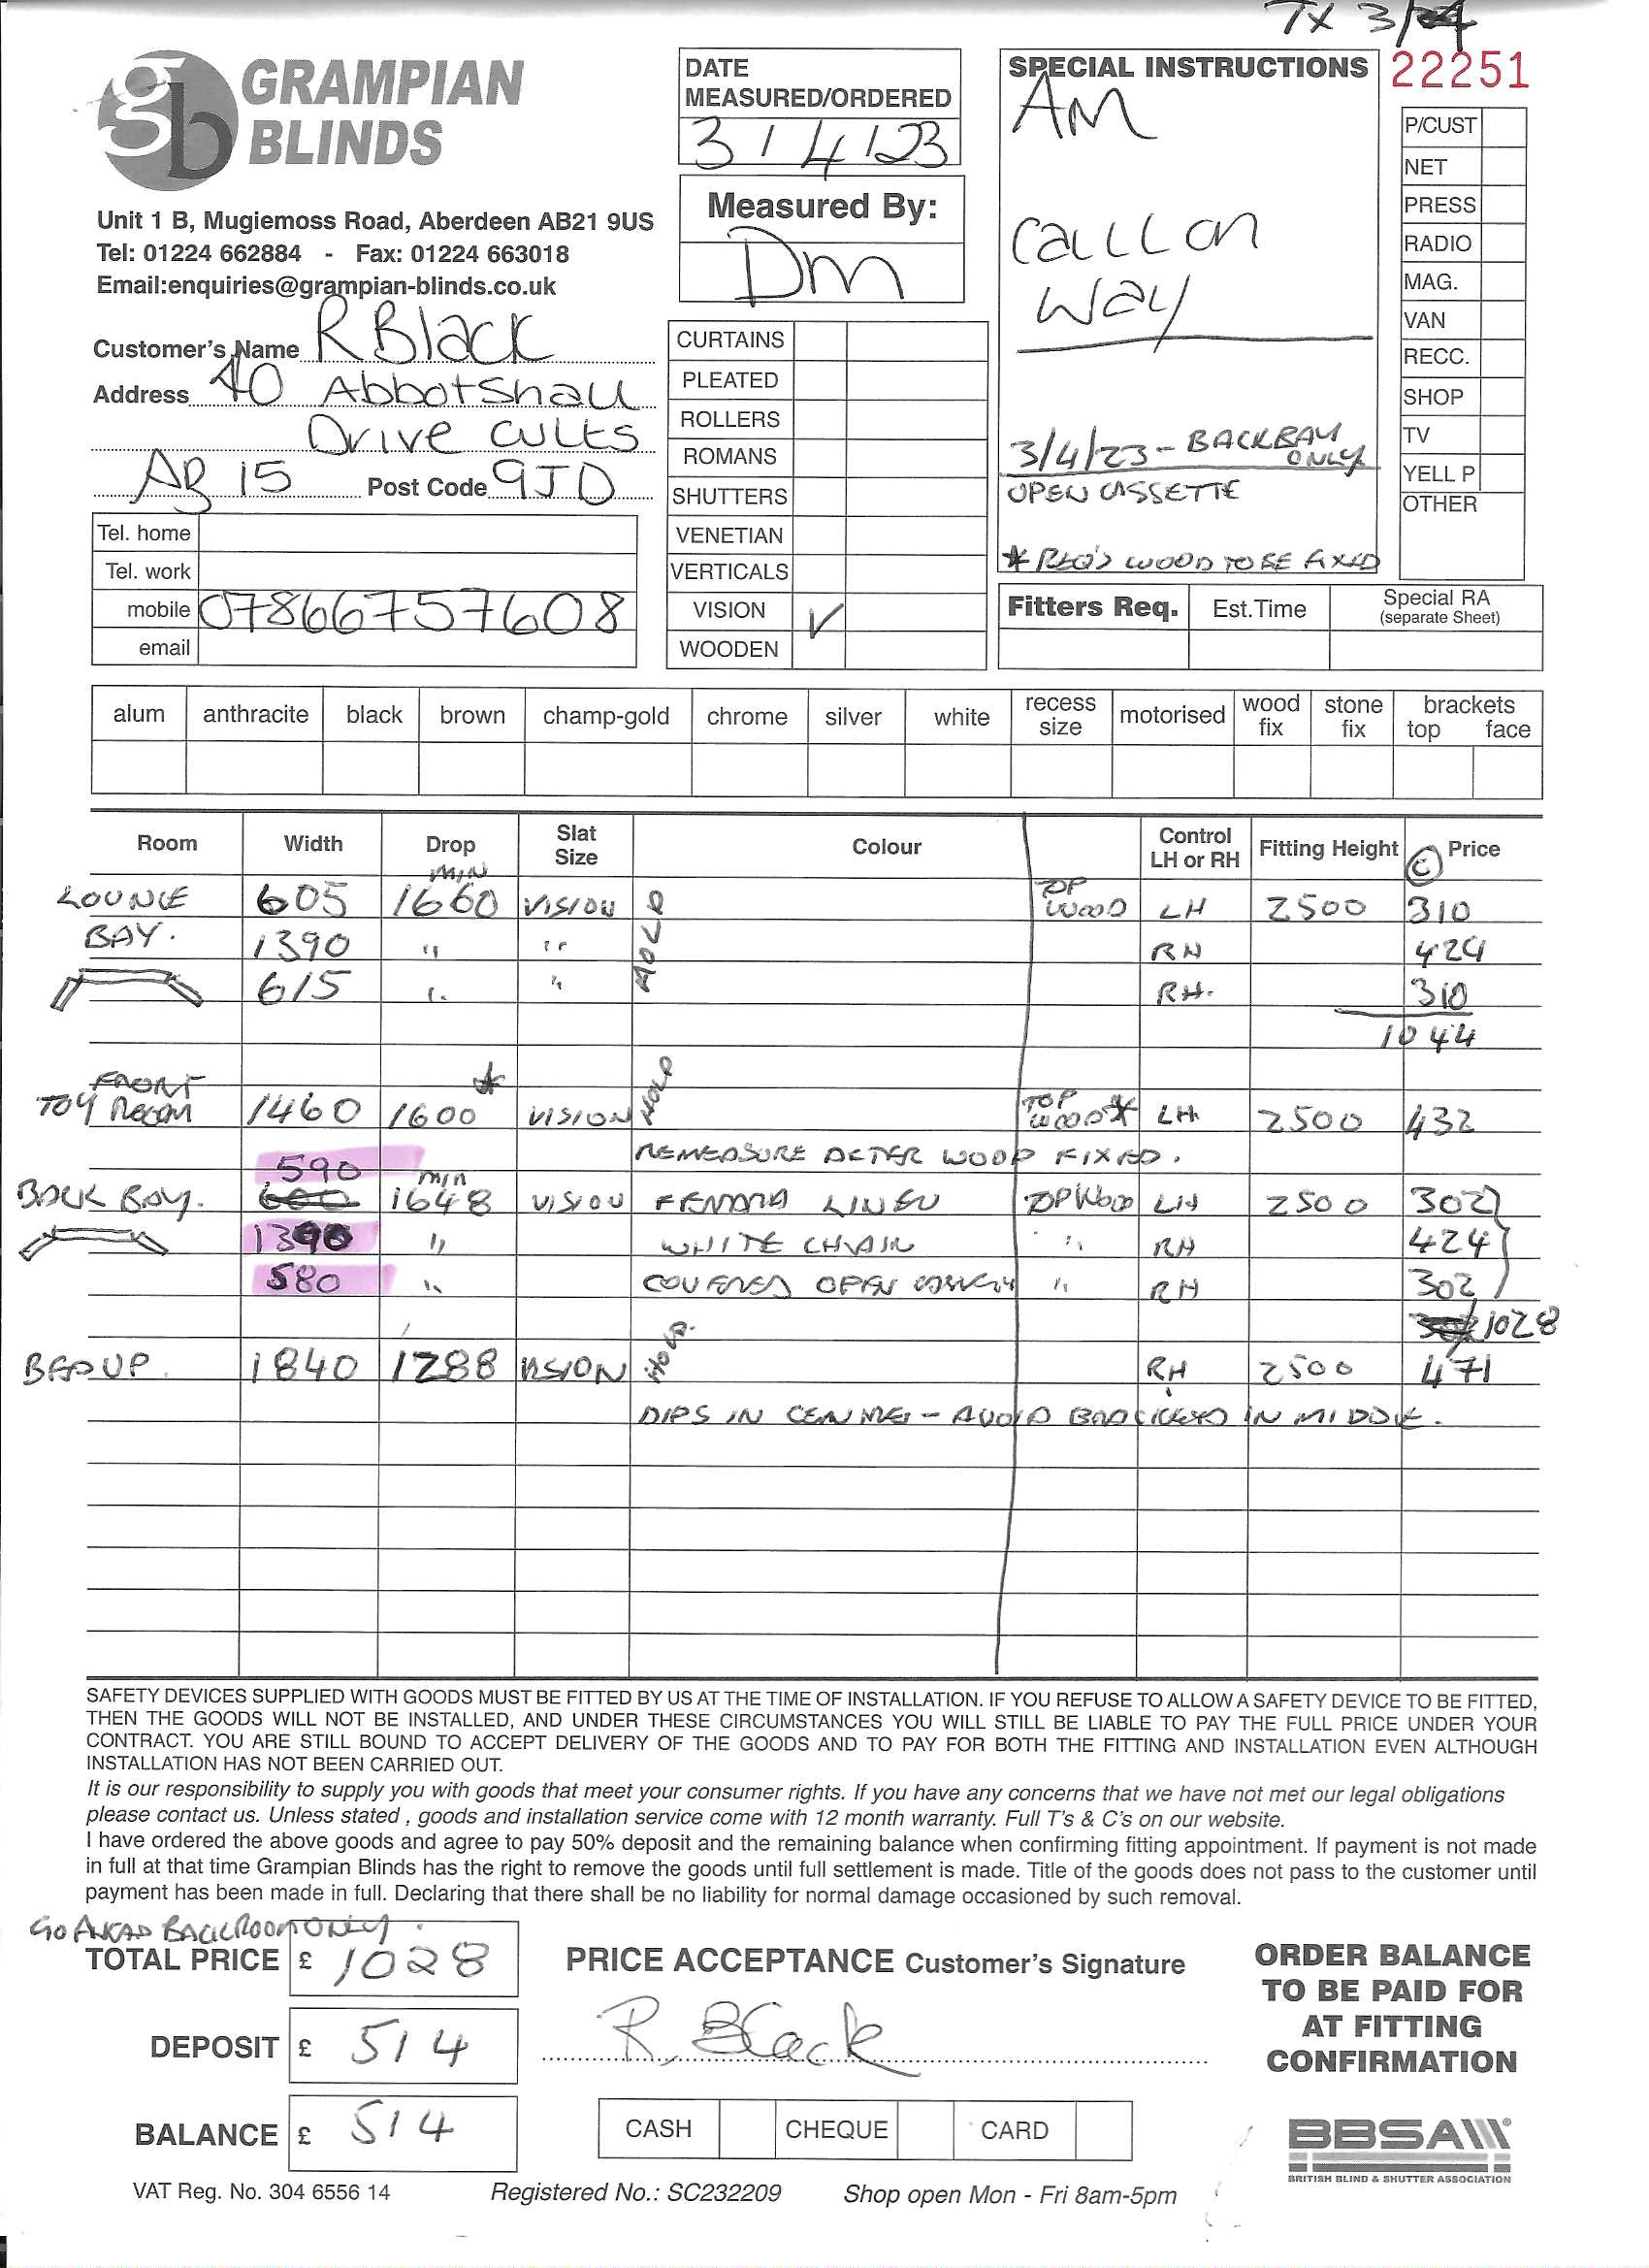 TX 3/24
GRAMPIAN
BLINDS
Unit 1 B, Mugiemoss Road, Aberdeen AB21 9US
Tel: 01224 662884 - Fax: 01224 663018
Email:enquiries@grampian-blinds.co.uk
Customer's Name R Black
Address 40 Abbotshall
Drive Cults
AB 15 Post Code 9JD
Tel. home
Tel. work
mobile 07866757608
email
DATE
MEASURED/ORDERED
3/4/23
Measured By:
Dm
CURTAINS
PLEATED
ROLLERS
ROMANS
SHUTTERS
VENETIAN
VERTICALS
VISION ✓
WOODEN
SPECIAL INSTRUCTIONS
AM
CALLL on
way
3/4/23 - BACK BAY
ONLY
OPEN CASSETTE
* REQ'S WOOD TO BE FIXED
22251
P/CUST
NET
PRESS
RADIO
MAG.
VAN
RECC.
SHOP
TV
YELL P
OTHER
Fitters Req. Est.Time Special RA
(separate Sheet)
alum anthracite black brown champ-gold chrome silver white recess size motorised wood fix stone fix brackets top face
Room Width Drop Slat Size Colour Control LH or RH Fitting Height (C) Price
MIN
LOUNGE 605 1660 VISION HOLD TOP WOOD LH 2500 310
BAY. 1390 " " RH 424
615 " " RH. 310
1044
FRONT
TOY ROOM 1460 1600 * VISION HOLD TOP WOOD * LH 2500 432
REMEASURE AFTER WOOD FIXED.
590 min
BACK BAY. 600 1648 VISION LINEN TOP WOOD LH 2500 302
1390 " WHITE CHAIN " RH 424
580 " COVERED OPEN CASSETTE " RH 302
1028
BED UP. 1840 1288 VISION HOLD. RH 2500 471
DIPS IN CENTRE - AVOID BRACKETS IN MIDDLE.
SAFETY DEVICES SUPPLIED WITH GOODS MUST BE FITTED BY US AT THE TIME OF INSTALLATION. IF YOU REFUSE TO ALLOW A SAFETY DEVICE TO BE FITTED,
THEN THE GOODS WILL NOT BE INSTALLED, AND UNDER THESE CIRCUMSTANCES YOU WILL STILL BE LIABLE TO PAY THE FULL PRICE UNDER YOUR
CONTRACT. YOU ARE STILL BOUND TO ACCEPT DELIVERY OF THE GOODS AND TO PAY FOR BOTH THE FITTING AND INSTALLATION EVEN ALTHOUGH
INSTALLATION HAS NOT BEEN CARRIED OUT.
It is our responsibility to supply you with goods that meet your consumer rights. If you have any concerns that we have not met our legal obligations
please contact us. Unless stated , goods and installation service come with 12 month warranty. Full T's & C's on our website.
I have ordered the above goods and agree to pay 50% deposit and the remaining balance when confirming fitting appointment. If payment is not made
in full at that time Grampian Blinds has the right to remove the goods until full settlement is made. Title of the goods does not pass to the customer until
payment has been made in full. Declaring that there shall be no liability for normal damage occasioned by such removal.
GO AHEAD BACK ROOM ONLY.
TOTAL PRICE £ 1028
DEPOSIT £ 514
BALANCE £ 514
PRICE ACCEPTANCE Customer's Signature
R. Black
CASH CHEQUE CARD
ORDER BALANCE
TO BE PAID FOR
AT FITTING
CONFIRMATION
BBSA
BRITISH BLIND & SHUTTER ASSOCIATION
VAT Reg. No. 304 6556 14 Registered No.: SC232209 Shop open Mon - Fri 8am-5pm